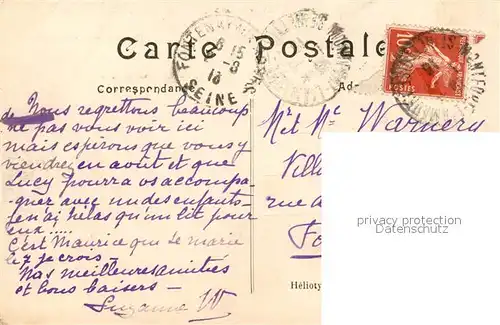 Carte Postale
Correspondance
Nous regrettons beaucoup
de ne pas vous voir ici
mais espérons que vous y
viendrez en août et que
Lucy pourra vs accompa-
gner avec un des enfants -
Je n'ai hélas qu'un lit pour
eux .....
C'est Maurice qui se marie
le 7 je crois -
Nos meilleures amitiés
et bons baisers -
Suzanne W
Mr et Me Warnery
Ville
rue
FONTENAY
6 15
SEINE
10
POSTES
privacy protection
Datenschutz
Hélioty